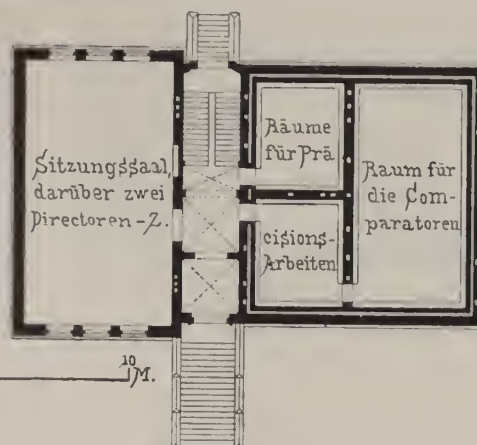 Sitzungssaal,
darüber zwei
Directoren-Z.
Räume
für Prä
cisions-
Arbeiten
Raum für
die Com-
paratoren
10
M.